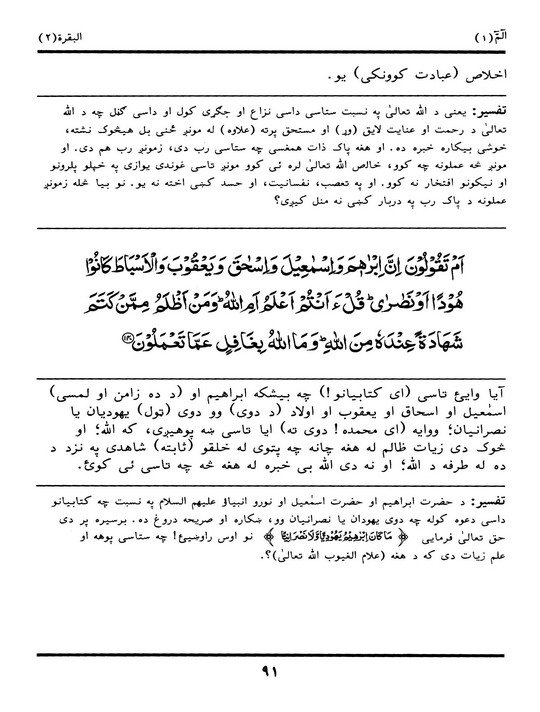 الٓمٓ (۱) البقرة (۲)
اخلاص (عبادت کوونکی) یو.
تفسیر: یعنی د الله تعالیٰ په نسبت ستاسی داسی نزاع او جګړی کول او داسی ګڼل چه د الله
تعالیٰ د رحمت او عنایت لایق (وړ) او مستحق پرته (علاوه) له مونږ ځنی بل هیڅوک نشته،
خوشی بیکاره خبره ده. او هغه پاک ذات همغسی چه ستاسی رب دی، زمونږ رب هم دی. او
مونږ څه عملونه چه کوو، خالص الله تعالیٰ لره ئی کوو مونږ تاسی غوندی یوازی په خپلو پلرونو
او نیکونو افتخار نه کوو. او په تعصب، نفسانیت، او حسد کښی اخته نه یو. نو بیا څله زمونږ
عملونه د پاک رب په دربار کښی نه منل کیږی؟
اَمْ تَقُوْلُوْنَ اِنَّ اِبْرٰهٖمَ وَاِسْمٰعِيْلَ وَاِسْحٰقَ وَيَعْقُوْبَ وَالْاَسْبَاطَ كَانُوْا
هُوْدًا اَوْ نَصٰرٰىؕ قُلْ ءَاَنْتُمْ اَعْلَمُ اَمِ اللّٰهُؕ وَمَنْ اَظْلَمُ مِمَّنْ كَتَمَ
شَهَادَةً عِنْدَهٗ مِنَ اللّٰهِؕ وَمَا اللّٰهُ بِغَافِلٍ عَمَّا تَعْمَلُوْنَ
آیا وایئ تاسی (ای کتابیانو!) چه بیشکه ابراهیم او (د ده زامن او لمسی)
اسمٰعیل او اسحاق او یعقوب او اولاد (د دوی) وو دوی (ټول) یهودیان یا
نصرانیان؛ ووایه (ای محمده! دوی ته) ایا تاسی ښه پوهیږی، که الله؛ او
څوک دی زیات ظالم له هغه چانه چه پټوی له خلقو (ثابته) شاهدی په نزد د
ده له طرفه د الله؛ او نه دی الله بی خبره له هغه څه چه تاسی ئی کوئ.
تفسیر: د حضرت ابراهیم او حضرت اسمٰعیل او نورو انبیاؤ علیهم السلام په نسبت چه کتابیانو
داسی دعوه کوله چه دوی یهودان یا نصرانیان وو، ښکاره او صریحه دروغ ده. برسیره پر دی
حق تعالیٰ فرمایی ﴿ مَاكَانَ اِبْرٰهِيْمُ يَهُوْدِيًّا وَّلَا نَصْرَانِيًّا ﴾ نو اوس راوښیئ! چه ستاسی پوهه او
علم زیات دی که د هغه (علام الغیوب الله تعالیٰ)؟.
۹۱